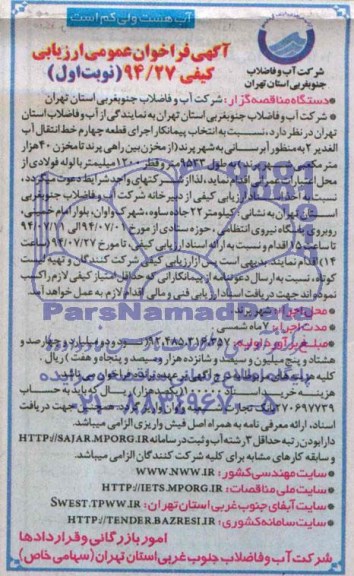 آب هست ولی کم است
آگهی فراخوان عمومی ارزیابی
کیفی ۹۴/۲۷ (نوبت اول)
شرکت آب و فاضلاب
جنوبغربی استان تهران
دستگاه مناقصه گزار: شرکت آب و فاضلاب جنوبغربی استان تهران
شرکت آب و فاضلاب جنوبغربی استان تهران به نمایندگی از آب و فاضلاب استان
تهران در نظر دارد، نسبت به انتخاب پیمانکار اجرای قطعه چهارم خط انتقال آب
الغدیر ۲ به منظور آبرسانی به شهر پرند (از مخزن بین راهی پرند تا مخزن ۴۰ هزار
متر مکعبی پرند) به طول ۹۵۴۳ متر و قطر ۱۲۰۰ میلیمتر با لوله فولادی از
محل اعتبارات عمرانی اقدام نماید، لذا از شرکتهای واجد شرایط دعوت میگردد،
نسبت به اخذ اسناد ارزیابی کیفی از دبیرخانه شرکت آب و فاضلاب جنوبغربی
استان تهران به نشانی: کیلومتر ۲۲ جاده ساوه، شهرک واوان، بلوار امام خمینی،
روبروی پاسگاه نیروی انتظامی، حوزه ستادی از مورخ ۹۴/۰۷/۰۱ الی ۹۴/۰۷/۱۱
تا ساعت ۱۵ اقدام و نسبت به ارائه اسناد ارزیابی کیفی تا مورخ ۹۴/۰۷/۲۷ (ساعت
۱۴) اقدام نمایند. بدیهی است پس از ارزیابی کیفی شرکت کنندگان و تهیه لیست
کوتاه، نسبت به ارسال دعوتنامه از پیمانکارانی که حداقل امتیاز کیفی لازم را کسب
نموده اند جهت دریافت اسناد ارزیابی فنی و مالی اقدام لازم به عمل خواهد آمد.
محل اجرا: شهر پرند
مدت اجرا: ۷ ماه شمسی
مبلغ برآورد اولیه: ۱۰۲،۴۸۵،۳۱۶،۳۵۷ (یکصد و دو میلیارد و چهارصد و
هشتاد و پنج میلیون و سیصد و شانزده هزار و سیصد و پنجاه و هفت) ریال.
کلیه هزینه های مربوط به درج آگهی بر عهده برنده فراخوان می باشد.
هزینه خرید اسناد (یکصد هزار) ریال که باید به حساب
۲۷۰۶۹۷۷۳۹ بانک تجارت شعبه واوان واریز گردد. ضمنا جهت دریافت
اسناد، ارائه معرفی نامه به همراه اصل فیش واریزی الزامی میباشد.
دارا بودن رتبه حداقل ۳ رشته آب و ثبت در سامانه HTTP://SAJAR.MPORG.IR
و سابقه کارهای مشابه برای کلیه شرکت کنندگان الزامی میباشد.
سایت مهندسی کشور: WWW.NWW.IR
سایت ملی مناقصات: HTTP://IETS.MPORG.IR
سایت آبفای جنوب غربی استان تهران: SWEST.TPWW.IR
سایت سامانه کشوری: HTTP://TENDER.BAZRESI.IR
امور بازرگانی و قراردادها
شرکت آب و فاضلاب جنوب غربی استان تهران (سهامی خاص)
ParsNamadData